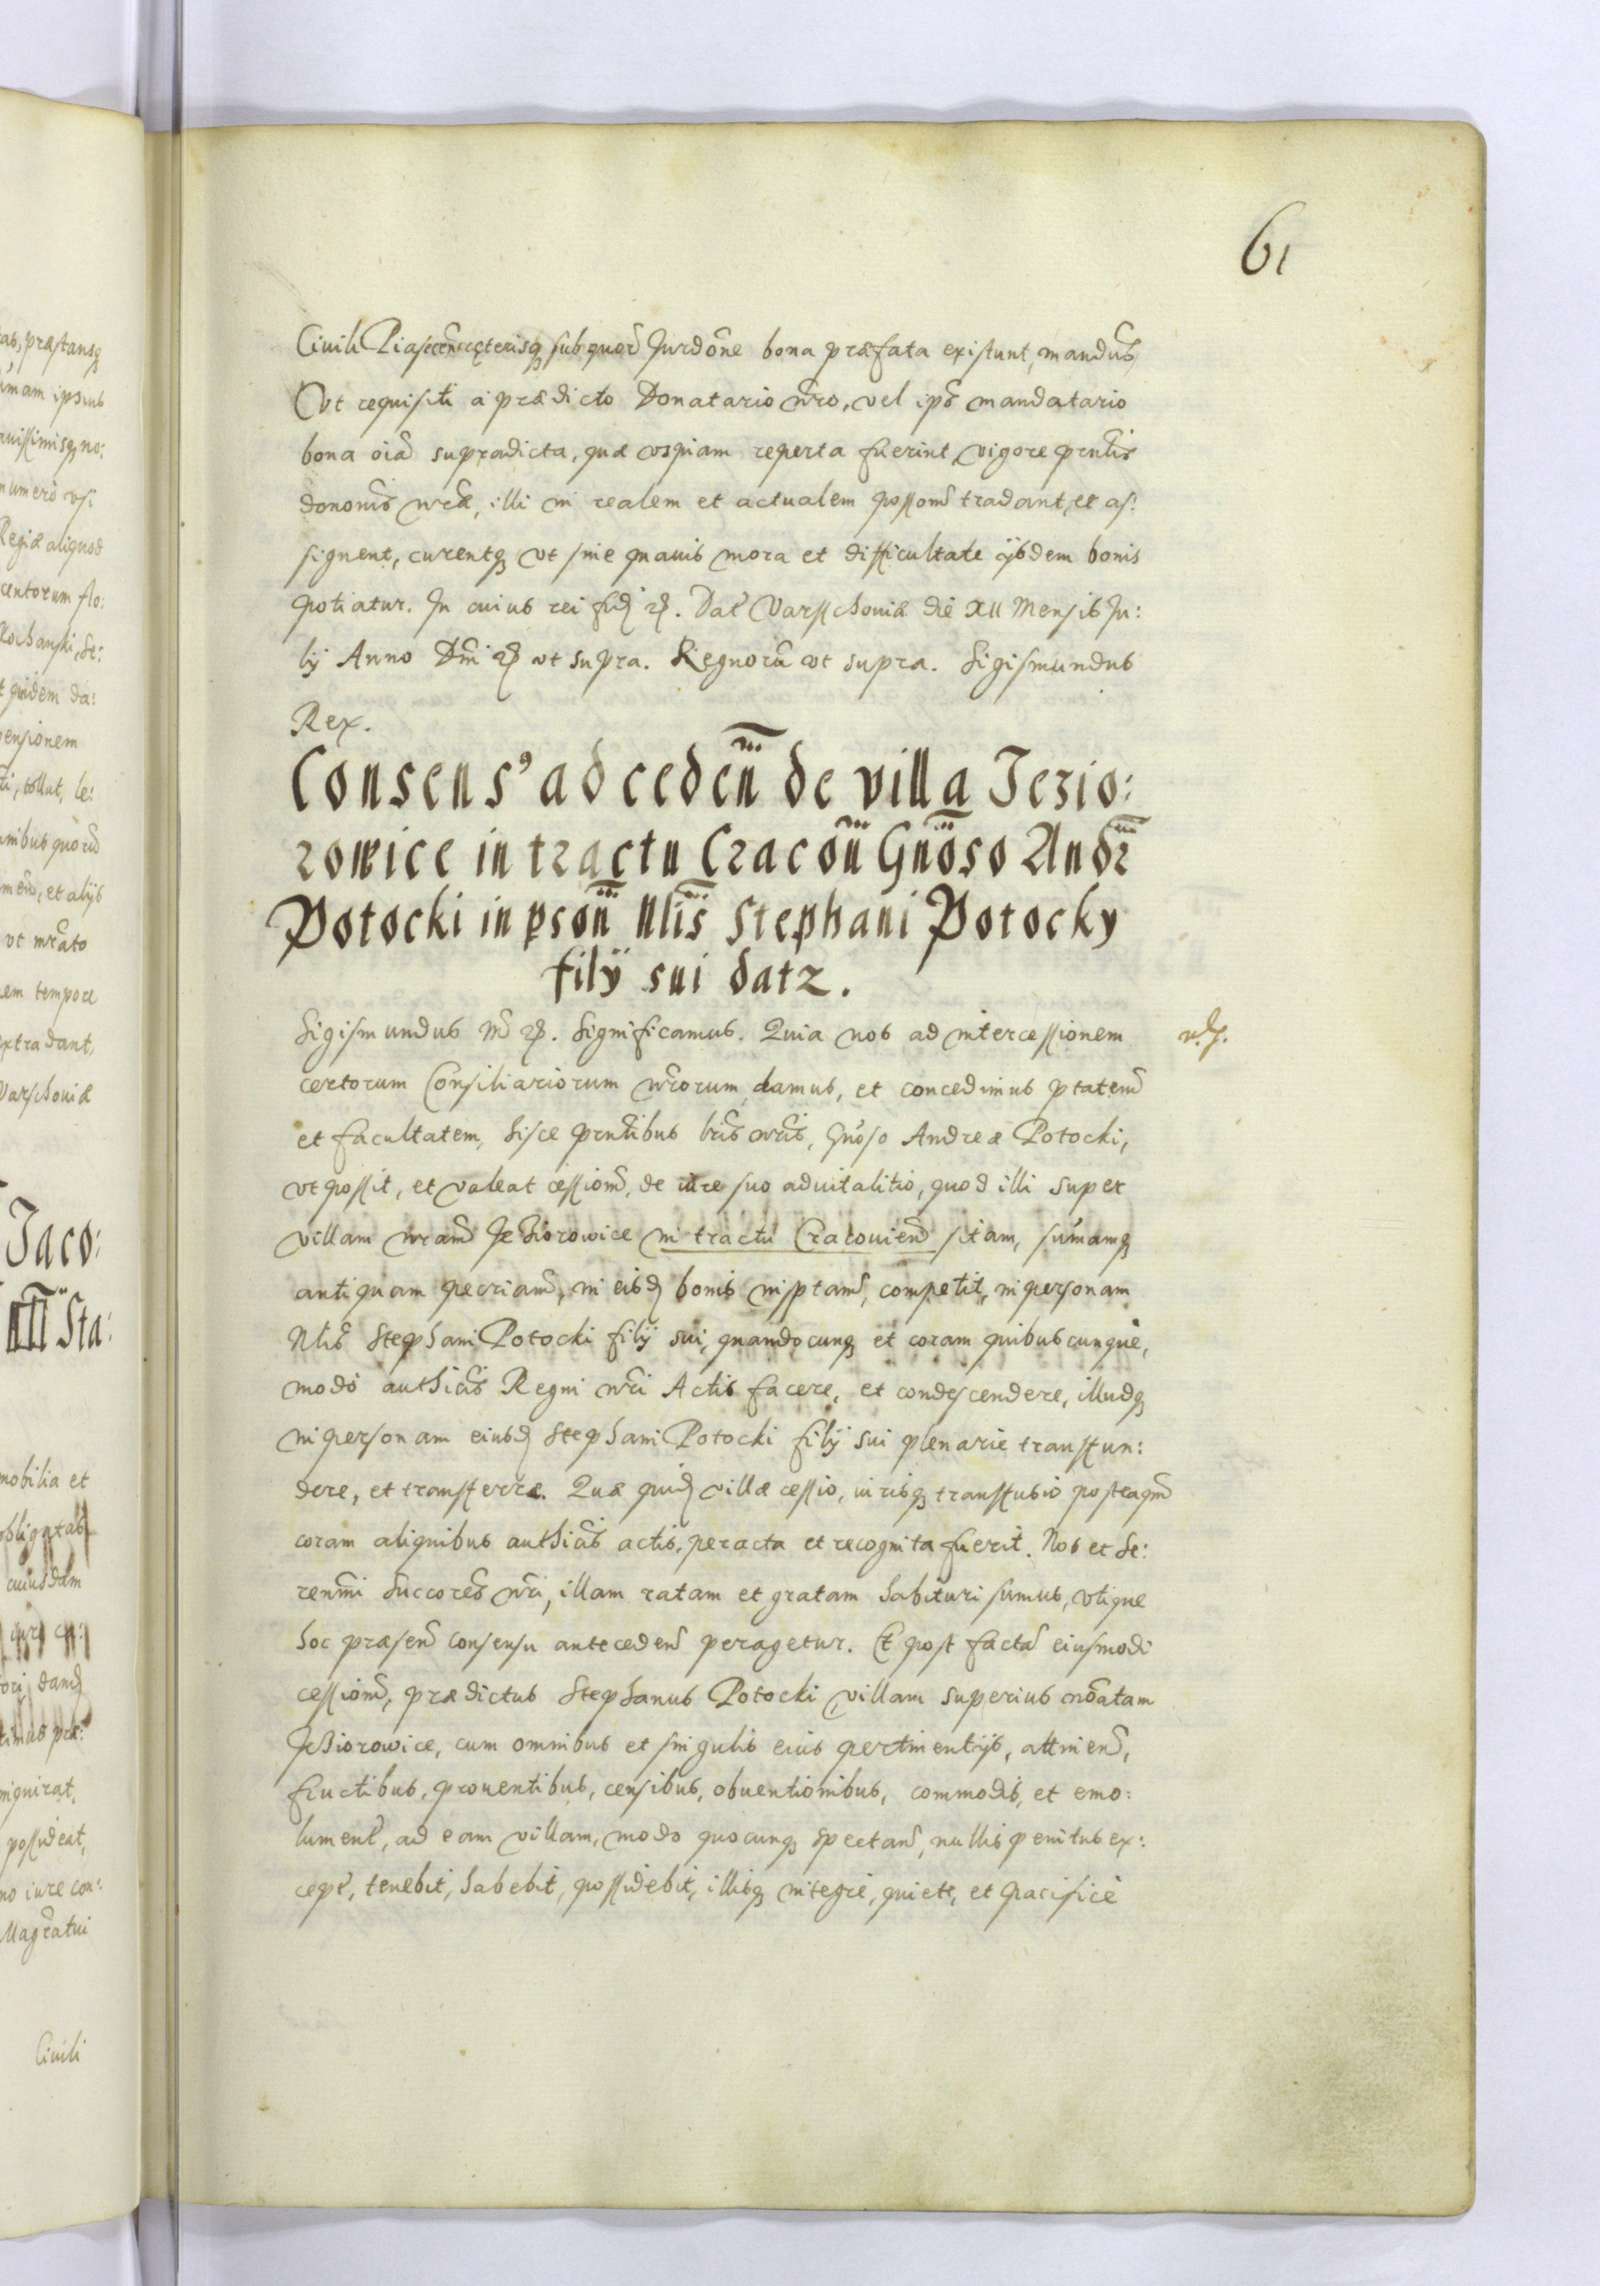 61
Civili Piasecen̄ cęterisq̨ sub quor̄ Jurdōne bona præfata existunt, mandūs,
Vt requisiti à prædicto Donatario n̄ro, vel ips̄ mandatario
bona oīa supradicta, quæ vspiam reperta fuerint, vigore prn̄tis
dononis̄ nr̄æ, illi in realem et actualem possom̄ tradant, et as:
signent, curentq̨ vt sine quauis mora et difficultate ijsdem bonis
potiatur. In cuius rei fid̨ ꝛc̨. Dat̄ Varsschouiæ die XII Mensis Ju:
lij Anno Dn̄i ꝛc̨ vt supra. Regnorū vt supra. Sigismundus
Rex.
Consens⁹ ad ceden̄ de villa Jezio:
rowice in tractu Cracōn̄ Gn̄oso Andr̄
Potocki in pson̄ Nlis̄ Stephani Potocky
filÿ sui datz.
Sigismundus III D̄ ꝛc̨. Significamus. Quia nos ad intercessionem
certorum Consiliariorum nr̄orum, damus, et concedimus ptatem̄
et facultatem, hisce prn̄tibus lr̄is nr̄is, Gn̄oso Andreæ Potocki,
vt possit, et valeat cessiom̄, de iure suo aduitalitio, quod illi super
villam nr̄am̄ Jeziorowice in tractu Cracouien̄ sitam, sum̄amq̨
antiquam pecriam̄, in eisd̨ bonis insptam̄, competit, in personam
Nlis̄ Stephani Potocki filij sui, quandocunq̨ et coram quibuscunque,
modo authicis̄ Regni nr̄i Actis facere, et condescendere, illudq̨
in personam eiusd̨ Stephani Potocki filij sui plenarie transfun:
dere, et transferre. Quæ quid̨ villæ cessio, iurisq̨ transfusio posteaqm̄
coram aliquibus authicis̄ actis, peracta et recognita fuerit. Nos et Se:
renm̄i Succores̄ nr̄i, illam ratam et gratam habituri sumus, vtique
hoc præsen̄ consensu anteceden̄ peragetur. Et post factā eiusmodi
cessiom̄, prædictus Stephanus Potocki villam superius nōatam
Jeziorowice, cum omnibus et singulis eius pertinentijs, attinen̄,
fructibus, prouentibus, censibus, obuentionibus, commodis, et emo:
lument̄, ad eam villam, modo quocunq̨ spectan̄, nullis penitus ex:
cept̄, tenebit, habebit, possidebit, illisq̨ integrè, quiete, et pacificè